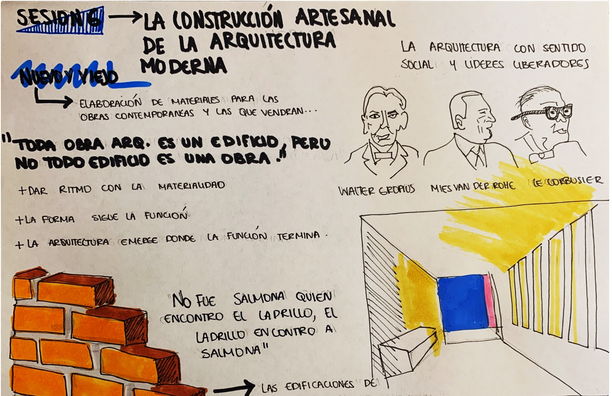 SESION 6 → LA CONSTRUCCIÓN ARTESANAL
DE LA ARQUITECTURA
MODERNA
NUEVO Y VIEJO
ELABORACIÓN DE MATERIALES PARA LAS
OBRAS CONTEMPORANEAS Y LAS QUE VENDRAN...
"TODA OBRA ARQ. ES UN EDIFICIO, PERO
NO TODO EDIFICIO ES UNA OBRA."
+DAR RITMO CON LA MATERIALIDAD
+LA FORMA SIGUE LA FUNCIÓN
+LA ARQUITECTURA EMERGE DONDE LA FUNCIÓN TERMINA.
LA ARQUITECTURA CON SENTIDO
SOCIAL Y LIDERES LIBERADORES
WALTER GROPIUS MIES VAN DER ROHE LE CORBUSIER
"NO FUE SALMONA QUIEN
ENCONTRO EL LADRILLO, EL
LADRILLO ENCONTRO A
SALMONA"
→ LAS EDIFICACIONES DE